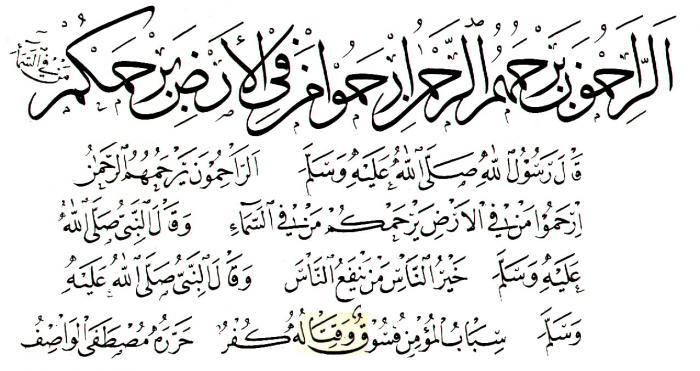 اَلرَّاحِمُونَ يَرْحَمُهُمُ الرَّحْمٰنُ اِرْحَمُوا مَنْ فِي الْأَرْضِ يَرْحَمْكُمْ مَنْ فِي السَّمَاءِ
قَالَ رَسُوْلُ اللهِ صَلَّى اللهُ عَلَيْهِ وَسَلَّمَ الرَّاحِمُونَ يَرْحَمُهُمُ الرَّحْمٰنُ
اِرْحَمُوا مَنْ فِي الْأَرْضِ يَرْحَمْكُمْ مَنْ فِي السَّمَاءِ وَقَالَ النَّبِيُّ صَلَّى اللهُ
عَلَيْهِ وَسَلَّمَ خَيْرُ النَّاسِ مَنْ يَنْفَعُ النَّاسَ وَقَالَ النَّبِيُّ صَلَّى اللهُ عَلَيْهِ
وَسَلَّمَ سِبَابُ الْمُؤْمِنِ فُسُوْقٌ وَقِتَالُهُ كُفْرٌ حَرَّرَهُ مُصْطَفَى الْوَاصِفُ